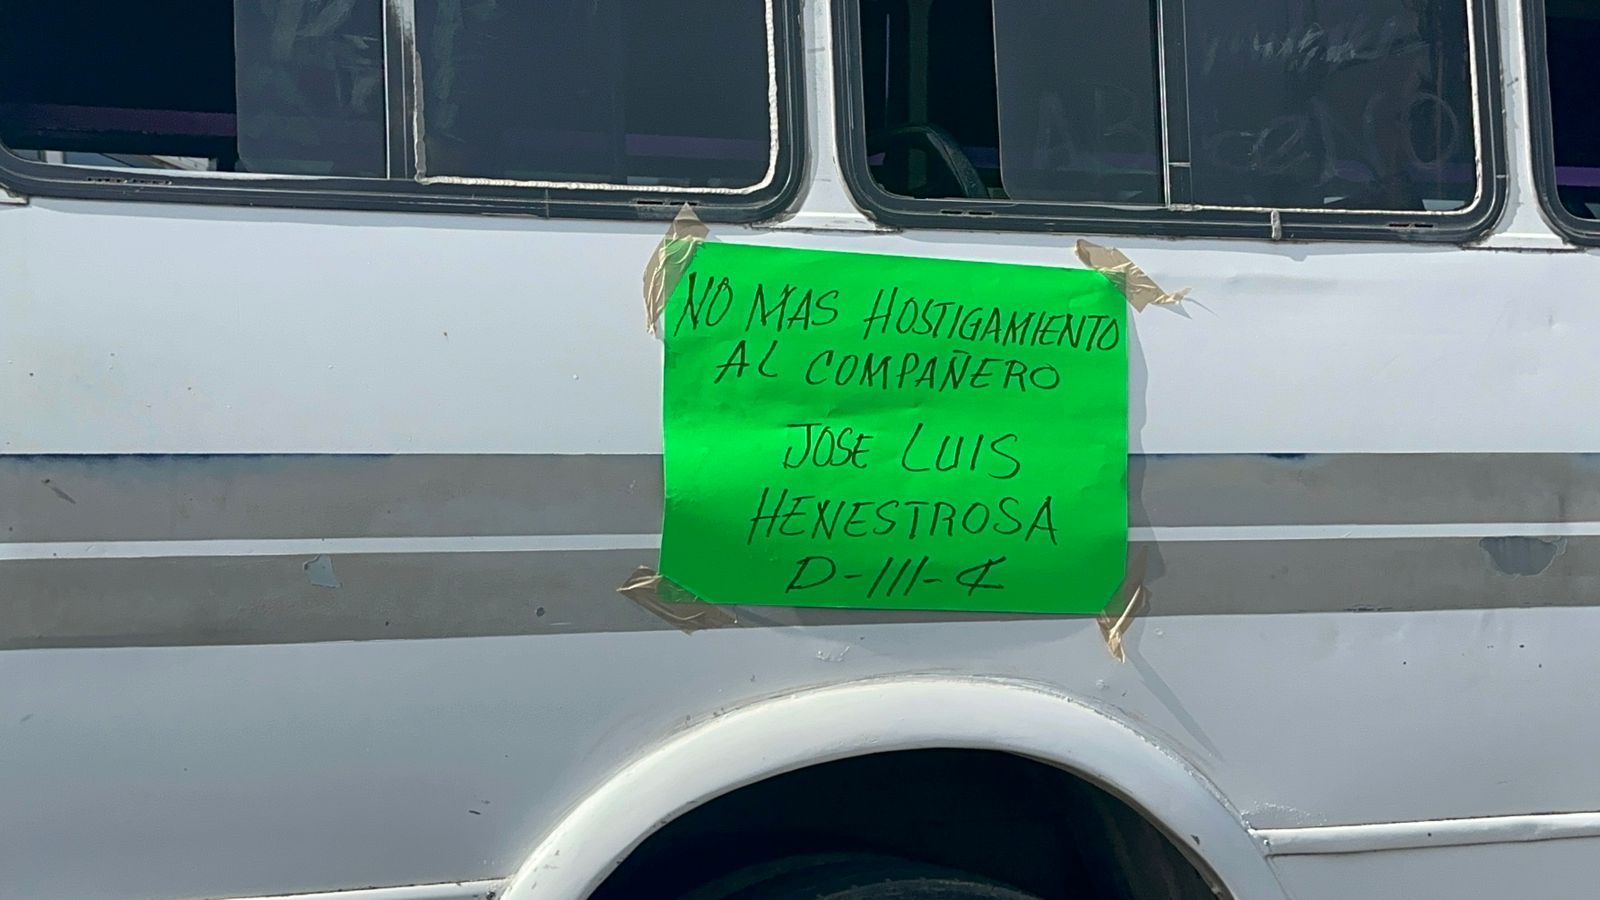 NO MAS HOSTIGAMIENTO
AL COMPAÑERO
JOSE LUIS
HENESTROSA
D-III-₡